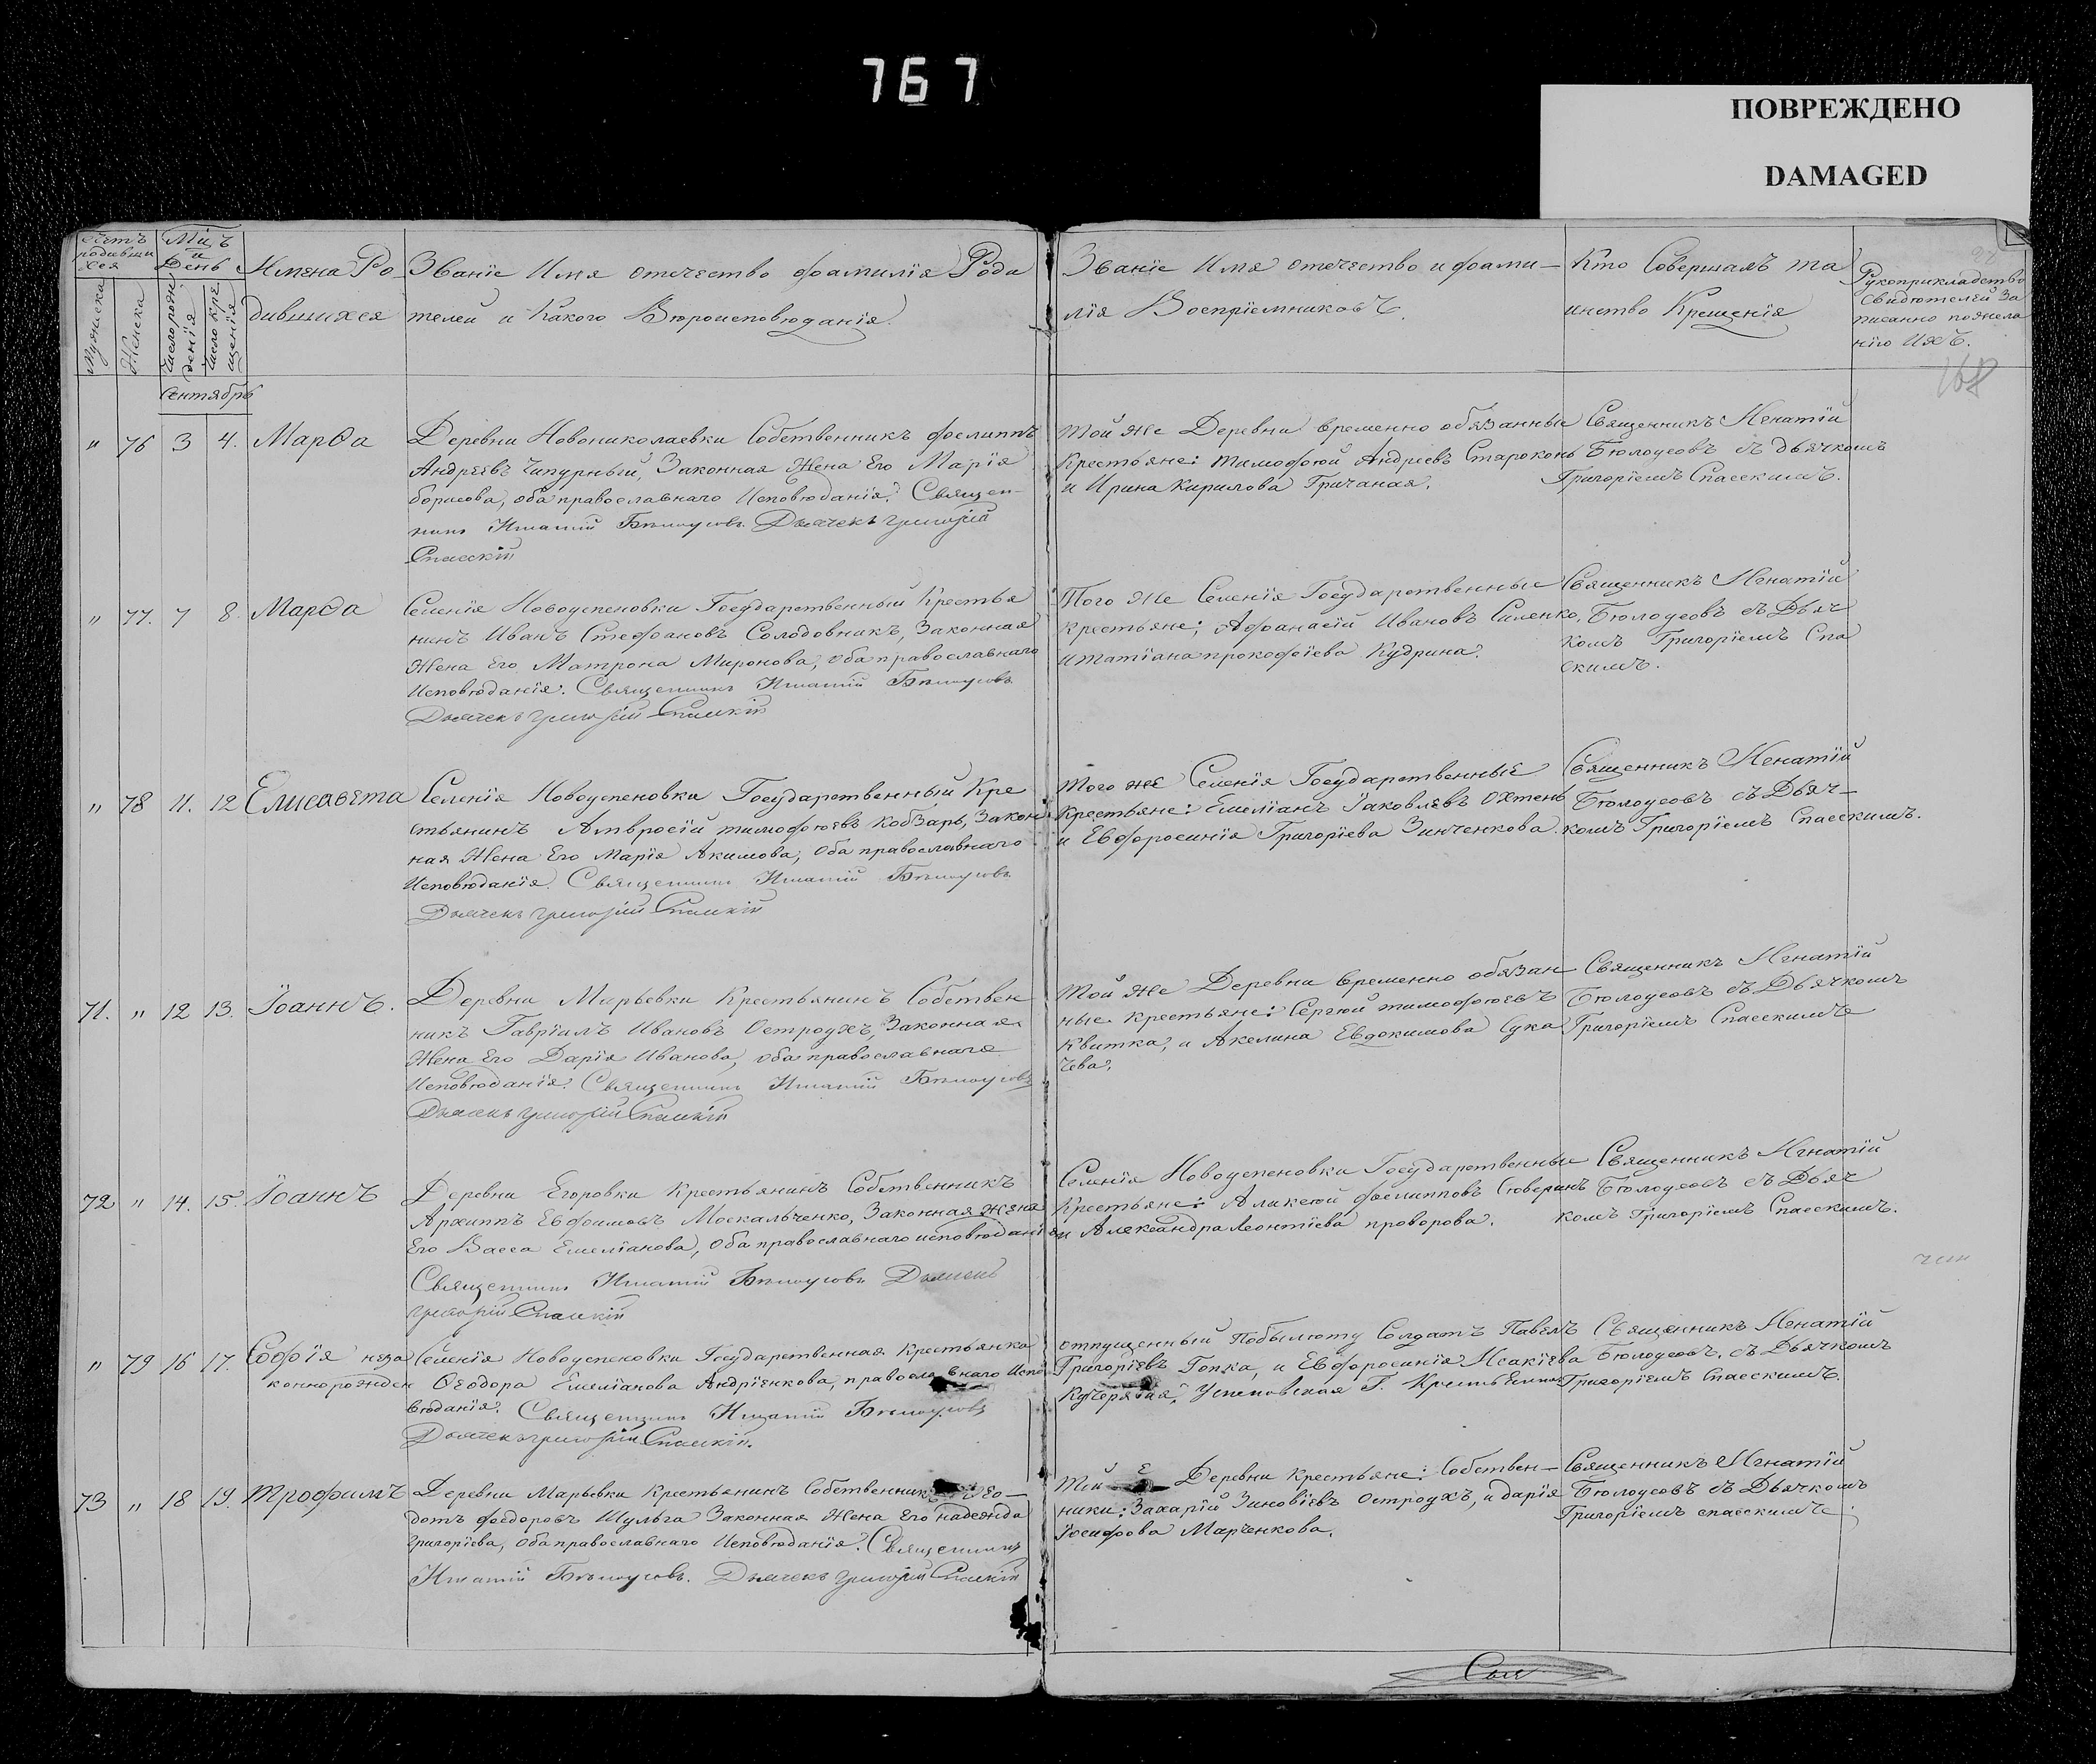 767
ПОВРЕЖДЕНО
DAMAGED
168
Счетъ родивши хся
Мужеска
Женска
Мцъ и День
Число рожденія
Число Крещенія
Имена Ро
дившихся
Званіе Имя отечество фамилія Роди
телей и Какого Вѣроисповѣданія.
Званіе Имя отечество и фами-
лія Воспріемниковъ.
Кто Совершалъ та
инство Крещенія
Рукоприкладство
Свидѣтелей За
писанно пожела
нію Ихъ.
Сентябрь
" 76 3 4. Марѳа
Деревни Новониколаевки Собственникъ филиппъ
Андреевъ Чипурный, Законная Жена Его Марія
борисова, оба православнаго Исповѣданія. Священ-
никъ Игнатій Бѣлоусовъ Дьячекъ григорій
Спасскій
Той же Деревни временно обязанные
Крестьяне: тимофѣй Андреевъ Староконь
и Ирина Кирилова Гричаная.
Священникъ Игнатій
Бѣлоусовъ съ дьячкомъ
Григоріемъ Спасскимъ.
" 77. 7 8. Марѳа
Селенія Новоуспеновки Государственный Крестья
нинъ Иванъ Стефановъ Солодовникъ, Законная
Жена Его Матрона Миронова, оба православнаго
Исповѣданія. Священникъ Игнатій Бѣлоусовъ
Дьячекъ григорій Спасскій
Того Же Селенія Государственные
Крестьяне; Афанасій Ивановъ Силенко,
и татіана прокофіева Кудрина.
Священникъ Игнатій
Бѣлоусовъ съ Дьяч
комъ Григоріемъ Спа
скимъ.
" 78 11. 12 Елисавета
Селенія Новоуспеновки Государственный Кре
стьянинъ Амвросій тимофѣевъ Кобзарь, Закон
ная Жена Его Марія Акимова, Оба православнаго
Исповѣданія. Священникъ Игнатій Бѣлоусовъ
Дьячекъ григорій Спасскій
Того же Селенія Государственные
Крестьяне: Емеліанъ Іаковлевъ Охтень
и Евфросинія Григоріева Зинченкова.
Священникъ Игнатій
Бѣлоусовъ съ Дьяч-
комъ Григоріемъ Спасскимъ.
71. " 12 13. Іоаннъ.
Деревни Марьевки Крестьянинъ Собствен
никъ Гавріилъ Ивановъ Остроухъ, Законная
Жена Его Дарія Иванова, оба православнаго
Исповѣданія. Священникъ Игнатій Бѣлоусовъ
Дьячекъ григорій Спасскій
Той Же Деревни временно обязан
ные Крестьяне: Сергѣй тимофѣевъ
Квитка, и Акелина Евдокимова Сука
чева.
Священникъ Игнатій
Бѣлоусовъ съ Дьячкомъ
Григоріемъ Спасскимъ
72 " 14. 15. Іоаннъ
Деревни Егоровки Крестьянинъ Собственникъ
Архиппъ Евфимовъ Москальченко, Законная Жена
Его Васса Емеліанова, Оба православнаго исповѣданія
Священникъ Игнатій Бѣлоусовъ Дьячекъ
григорій Спасскій
Селенія Новоуспеновки Государственные
Крестьяне: Аликсѣй филипповъ Сѣверинъ
и Александра Леонтіева проворова.
Священникъ Игнатій
Бѣлоусовъ съ Дьяч
комъ Григоріемъ Спасскимъ.
" 79 16 17. Софія неза
коннорожден
Селенія Новоуспеновки Государственная Крестьянка
Ѳеодора Емеліанова Андріенкова, православнаго Испо
вѣданія. Священникъ Игнатій Бѣлоусовъ
Дьячекъ григорій Спасскій.
отпущенный Побылету Солдатъ Павелъ
Григоріевъ Гопка, и Евфросинія Исакіева
Кучерявая, Успеновская Г. Крестьянка
Священникъ Игнатій
Бѣлоусовъ, съ Дьячкомъ
Григоріемъ Спасскимъ.
73 " 18 19. Трофимъ
Деревни Марьевки Крестьянинъ Собственникъ Ѳео-
дотъ феодоровъ Шульга Законная Жена Его надежда
григоріева, оба православнаго Исповѣданія. Священникъ
Игнатій Бѣлоусовъ. Дьячекъ григорій Спасскій
Той Же Деревни Крестьяне: Собствен-
ники: Захарій Зиновіевъ Остроухъ, и дарія
Іосифова Марченкова.
Священникъ Игнатій
Бѣлоусовъ съ Дьячкомъ
Григоріемъ спасскимъ